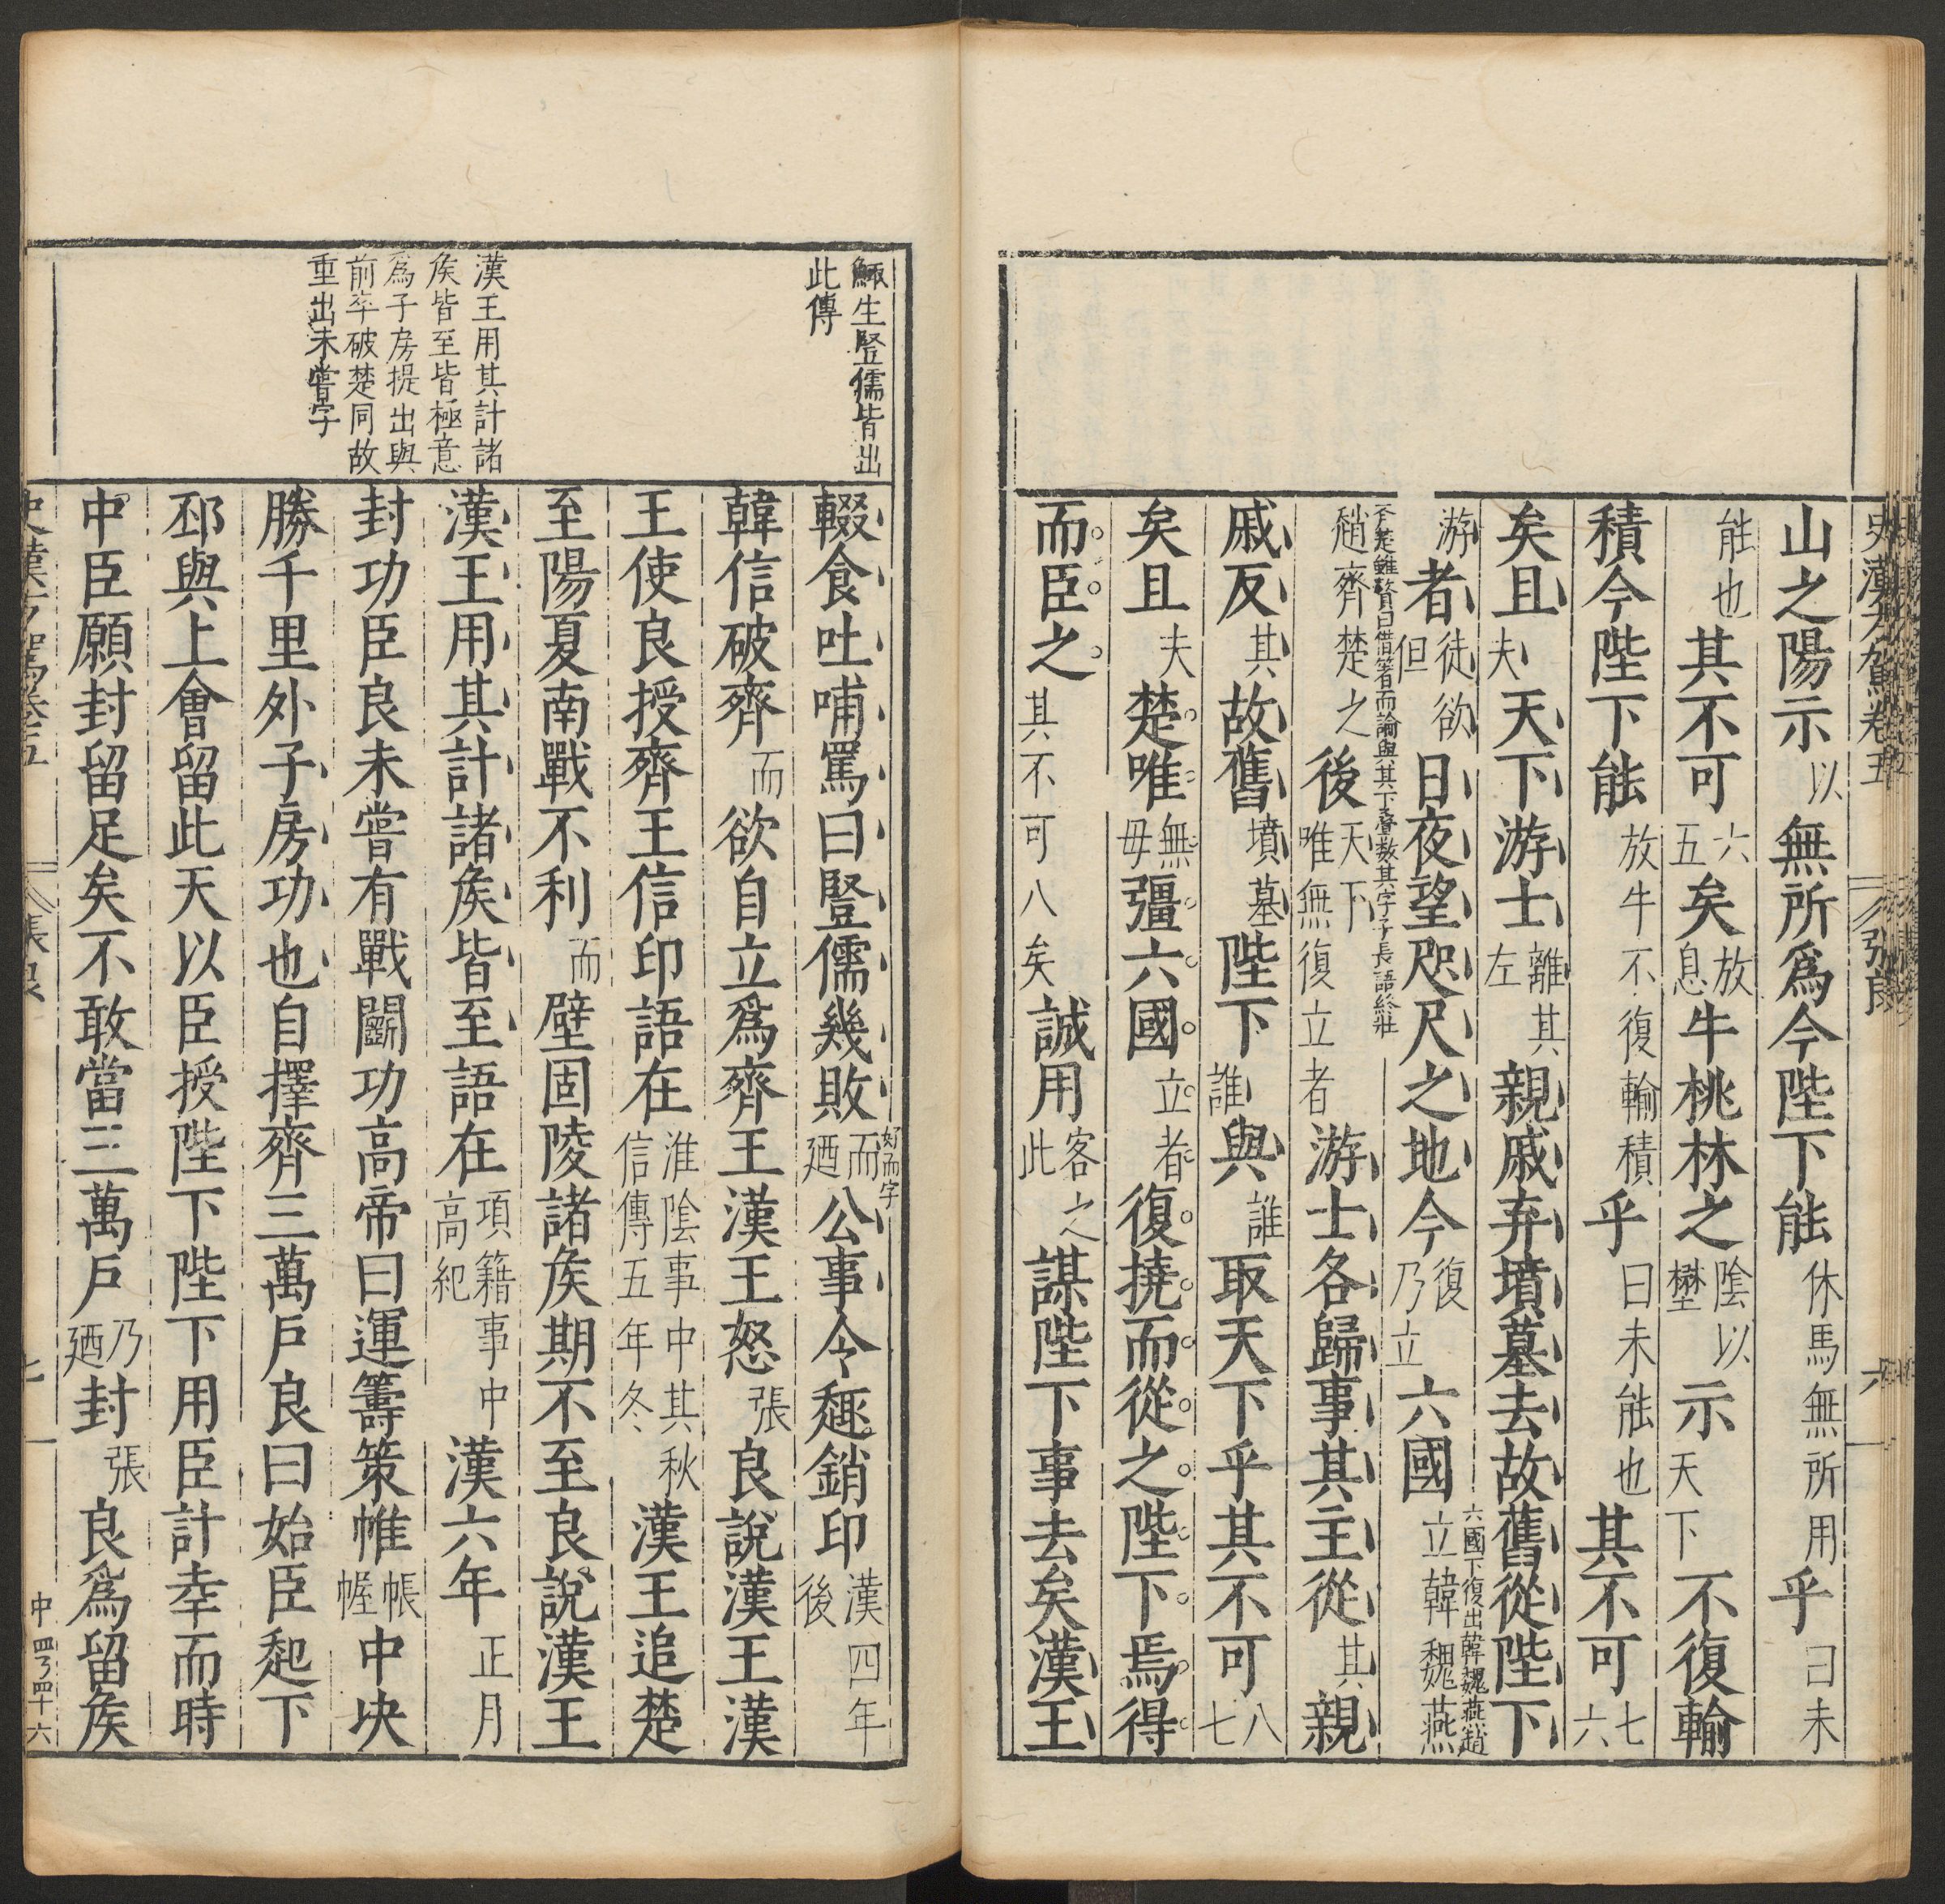 史漢方駕卷五 張良 六
山之陽示以無所爲今陛下能休馬無所用乎曰未
能也其不可六五矣放息牛桃林之陰以壄示天下不復輸
積今陛下能放牛不復輸積乎曰未能也其不可七六
矣且夫天下游士離其左親戚弃墳墓去故舊從陛下
六國下復出韓魏燕趙
游者徒欲但日夜望咫尺之地今復乃立六國立韓魏燕
齊楚雖贅曰借箸而論與其下疊數其字子長語給壯
趙齊楚之後天下唯無復立者游士各歸事其主從其親
戚反其故舊墳墓陛下誰與誰取天下乎其不可八七
矣且夫楚唯無毋彊六國立者復撓而從之陛下焉得
而臣之其不可八矣誠用客之此謀陛下事去矣漢王
鯫生豎儒皆出
此傳
漢王用其計諸
矦皆至皆極意
爲子房提出與
前卒破楚同故
重出未嘗字
好而字
輟食吐哺罵曰豎儒幾敗而廼公事令趣銷印漢四年後
韓信破齊而欲自立爲齊王漢王怒張良說漢王漢
王使良授齊王信印語在淮陰事中其秋信傳五年冬漢王追楚
至陽夏南戰不利而壁固陵諸矦期不至良說漢王
漢王用其計諸矦皆至語在項籍事中高紀漢六年正月
封功臣良未嘗有戰鬭功高帝曰運籌策帷帳幄中決
勝千里外子房功也自擇齊三萬戶良曰始臣起下
邳與上會留此天以臣授陛下陛下用臣計幸而時
中臣願封留足矣不敢當三萬戶乃廼封張良爲留矦
史漢方駕卷五 張良 七 中四丂四十六